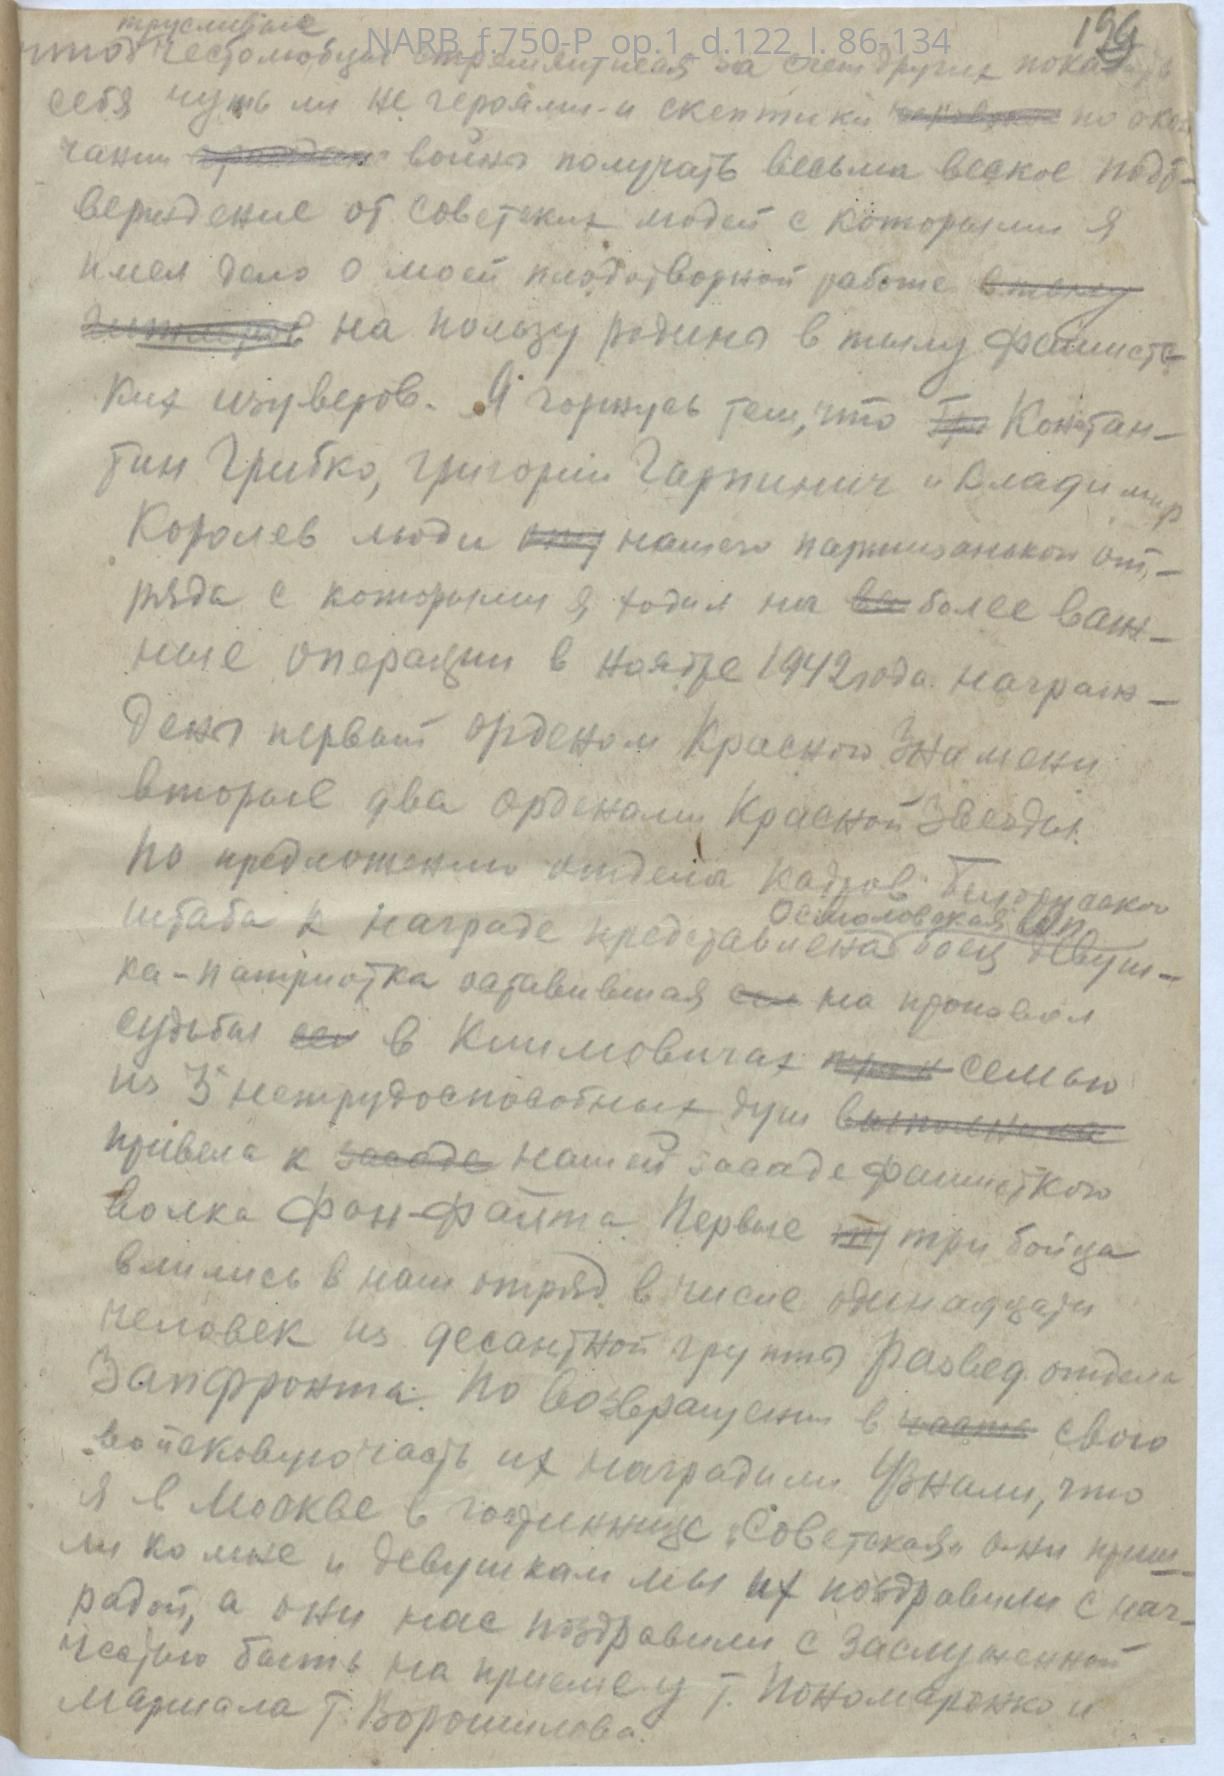 NARB_f.750-P_op.1_d.122_l. 86-134
199
трусливые
чтоб честолюбцы стремящиеся за счет других показать
себя чуть ли не героями и скептики по окон
чании войны получать весьма веское подт-
верждение от советских людей с которыми я
имел дело о моей плодотворной работе в тылу
на пользу родины в тылу фашистс-
ких изуверов. Я горжусь тем, что Гри Констан-
тин Грибко, Григорий Гарпинич и Владимир
Королев люди нашего партизанской от-
ряда с которыми я ходил на ва более важ-
ные операции в ноябре 1942 года награж-
дены первый орденом Красного Знамени
вторые два орденами Красной Звезды.
По предложению отдела кадров Белорусского
Осмоловская
штаба к награде представлена боец девуш-
ка-патриотка оставившая на произвол
судьбы в Климовичах семью
из 5 нетрудоспособных душ выполнила
привела к засаде нашей засаде фашисткого
волка Фон-Файта. Первые три бойца
влились в наш отряд в числе одинадцати
человек из десантной группы развед. отдела
Запфронта. По возвращении в часть свою
войсковую часть их наградили. Узнали, что
я в Москве в гостиннице „Советская" они приш-
ли ко мне и девушкам мы их поздравили с наг-
радой, а они нас поздравили с заслуженной
честью быть на приеме у т. Пономаренко и
маршала т. Ворошилова.